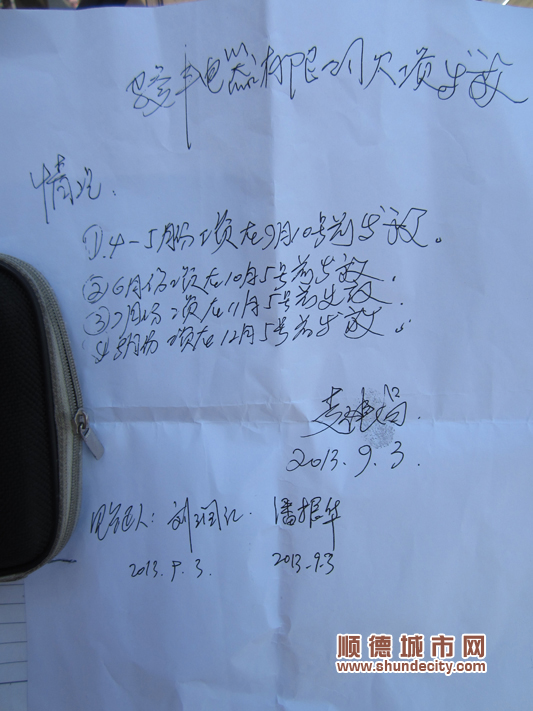 电器有限公司欠项发放
情况:
①.4-5月份工资在9月10号前发放。
②6月份工资在10月5号前发放.
③7月份工资在11月5号前发放.
④8月份工资在12月5号前发放.
2013.9.3.
见证人: 刘润江 潘振华
2013.9.3. 2013.9.3
顺德城市网
www.shundecity.com